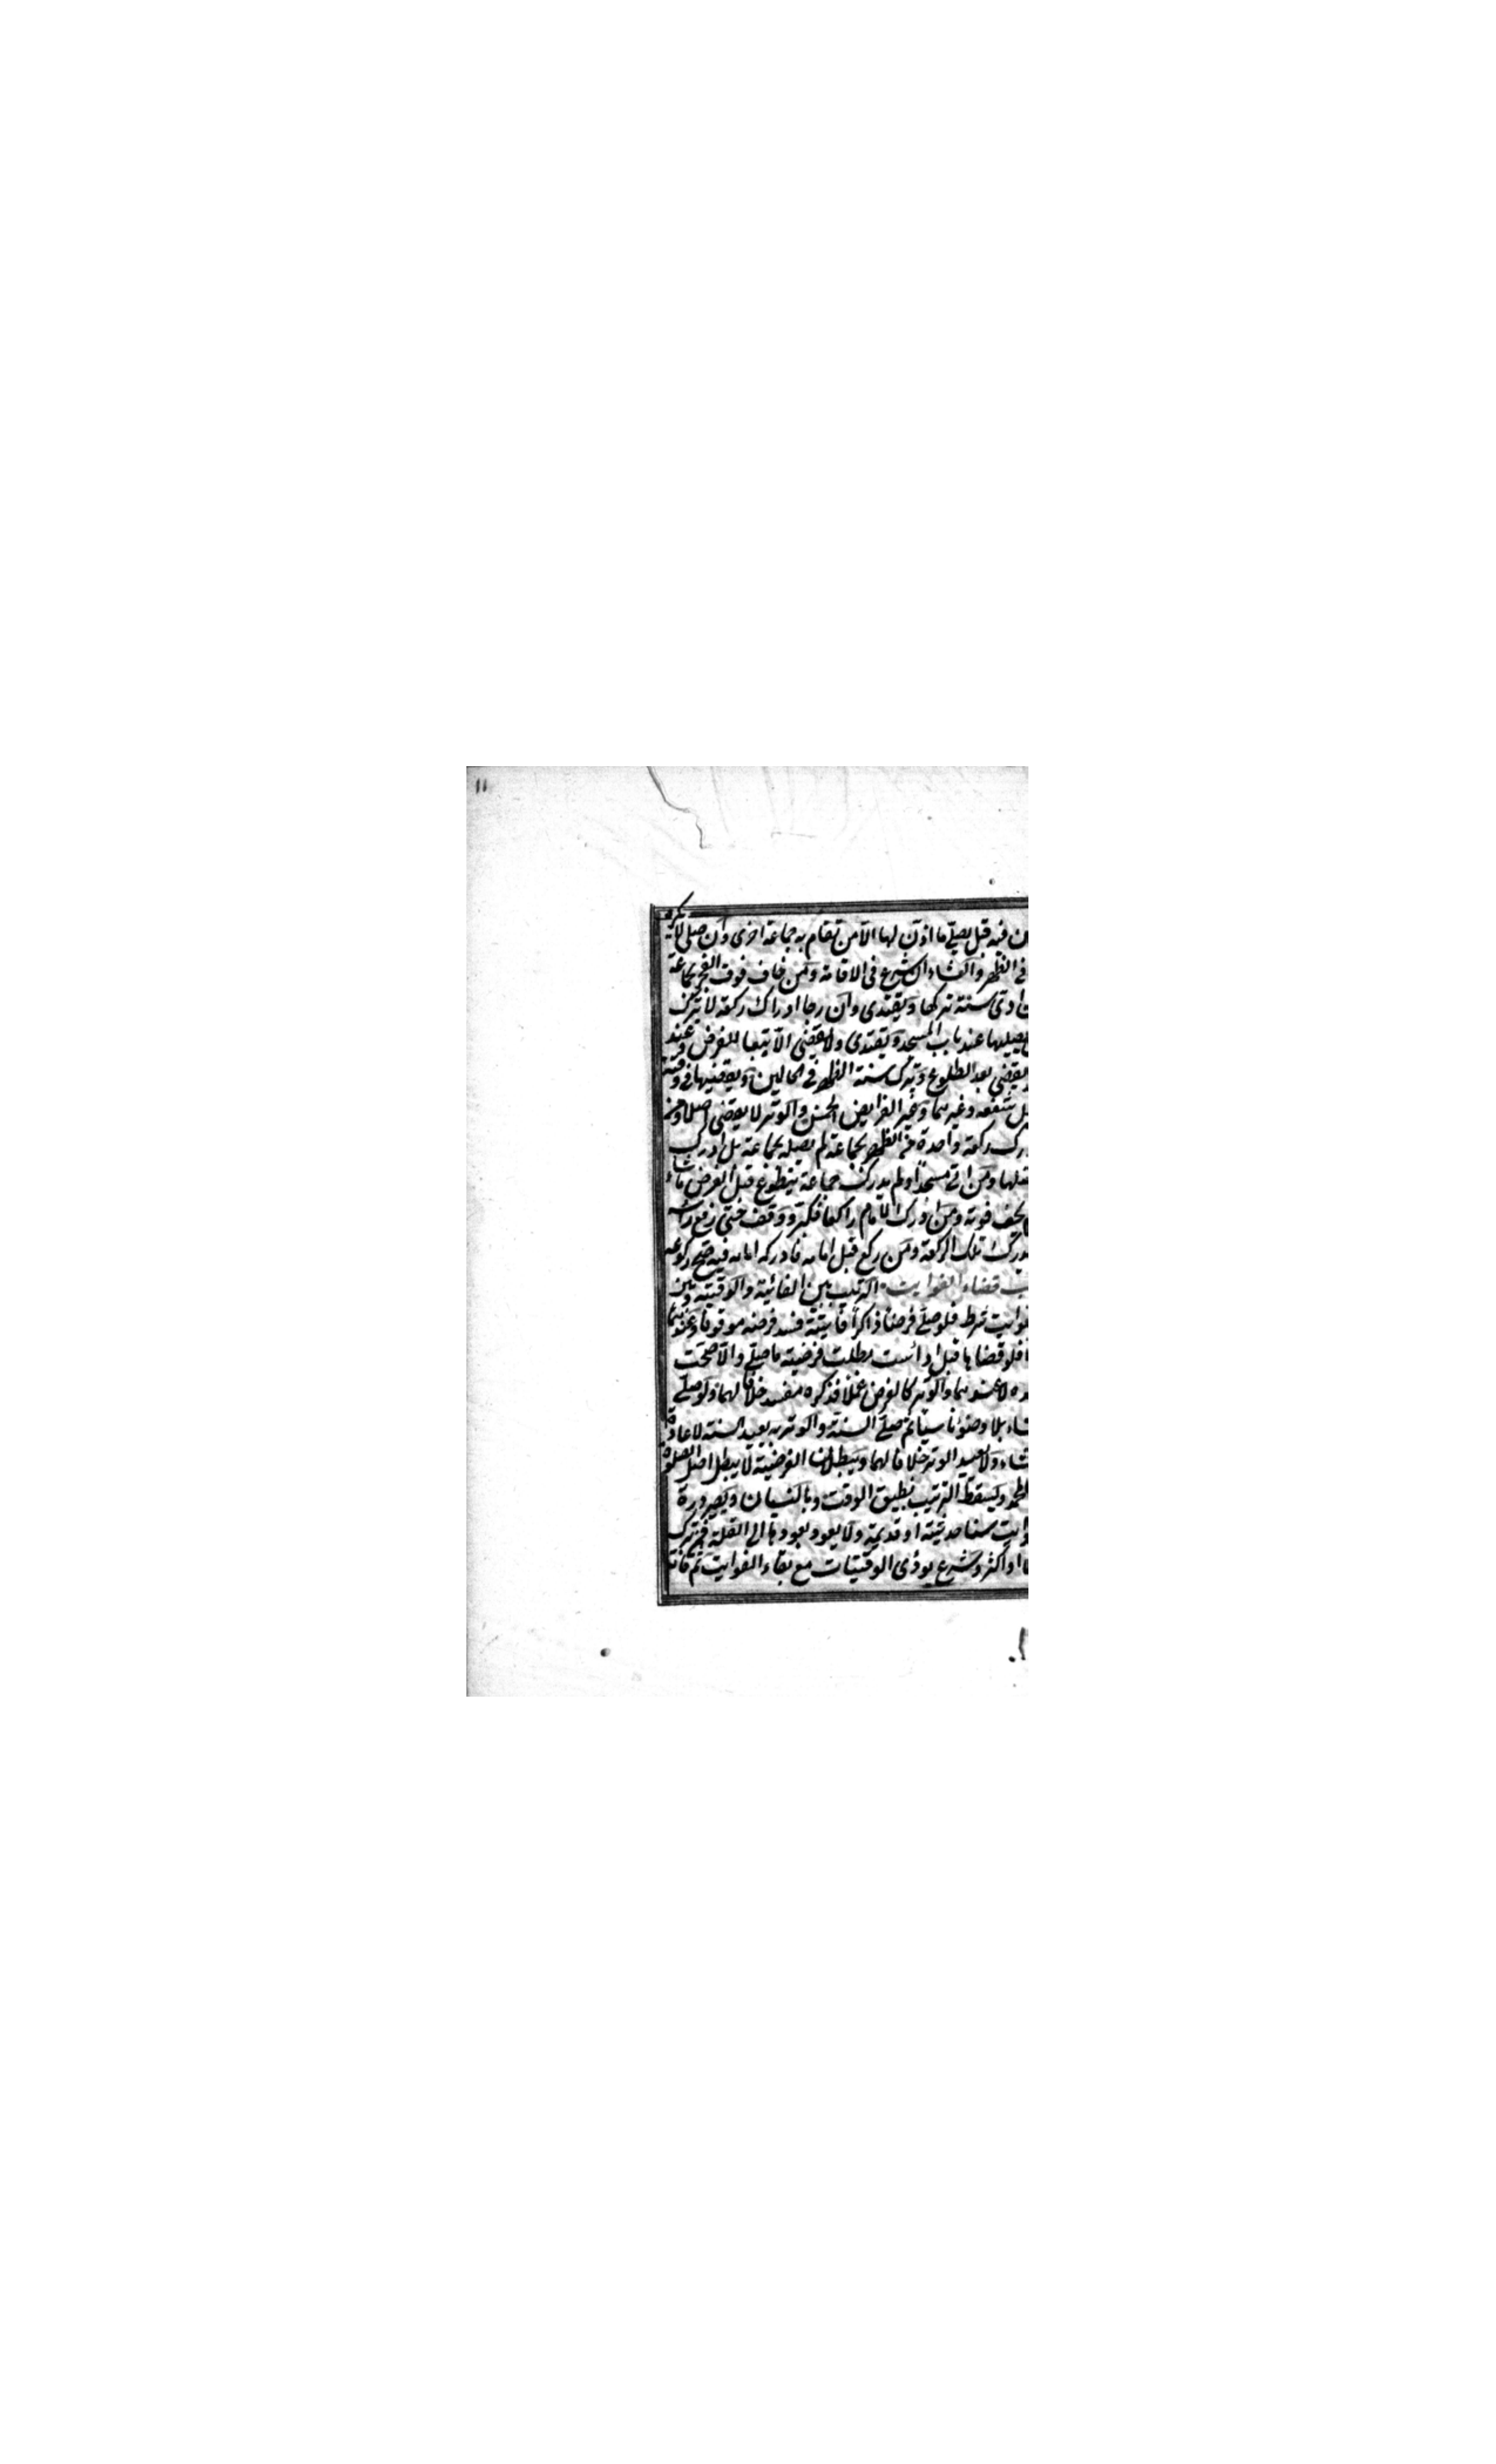 ١١
فيه قبل يصلي ما اذن لها الا من تقام به جماعة اخرى وان صلى لا يكره
في الظهر والعشاء ان شرع في الاقامة ومن خاف فوت الفجر بجماعة
ادى سنته تركها ويقتدى وان رجا ادراك ركعة لا يترك
يصليها عند باب المسجد ويقتدى ولا يقضى الا تبعا للفرض عند
يقضى بعد الطلوع ويترك سنة الظهر في الحالين ويقضيها في وقته
شفعه وغيرهما وغير الفرايض الخمس والوتر لا يقضى اصلا ومن
ركعة واحدة من الظهر بجماعة لم يصله بجماعة بل ادرك
فضلها ومن اتى مسجدا ولم يدرك جماعة يتطوع قبل الفرض ما شاء
يخف فوته ومن ادرك الامام راكعا فكبر ووقف حتى رفع راسه
يدرك تلك الركعة ومن ركع قبل امامه فادركه امامه فيه صح ركوعه
قضاء الفوايت الترتيب بين الفائتة والوقتية وبين
الفوايت شرط فلو صلى فرضا ذاكرا فائتة فسد فرضه موقوفا وعندهما
فلو قضاها قبل اداء ست بطلت فرضية ما صلى والا صحت
لا عندهما والوتر كالفرض عملا فذكره مفسد خلافا لهما ولو صلى
بلا وضوء ناسيا ثم صلى السنة والوتر به يعيد السنة لاعادة
ولا يعيد الوتر خلافا لهما وببطلان الفرضية لا يبطل اصل الصلوة
لمحمد ويسقط الترتيب بضيق الوقت وبالنسيان وبصيرورة
ستا حديثة او قديمة ولا يعود بعودها الى القلة فمن ترك
او اكثر وشرع يؤدى الوقتيات مع بقاء الفوايت ثم فاتته